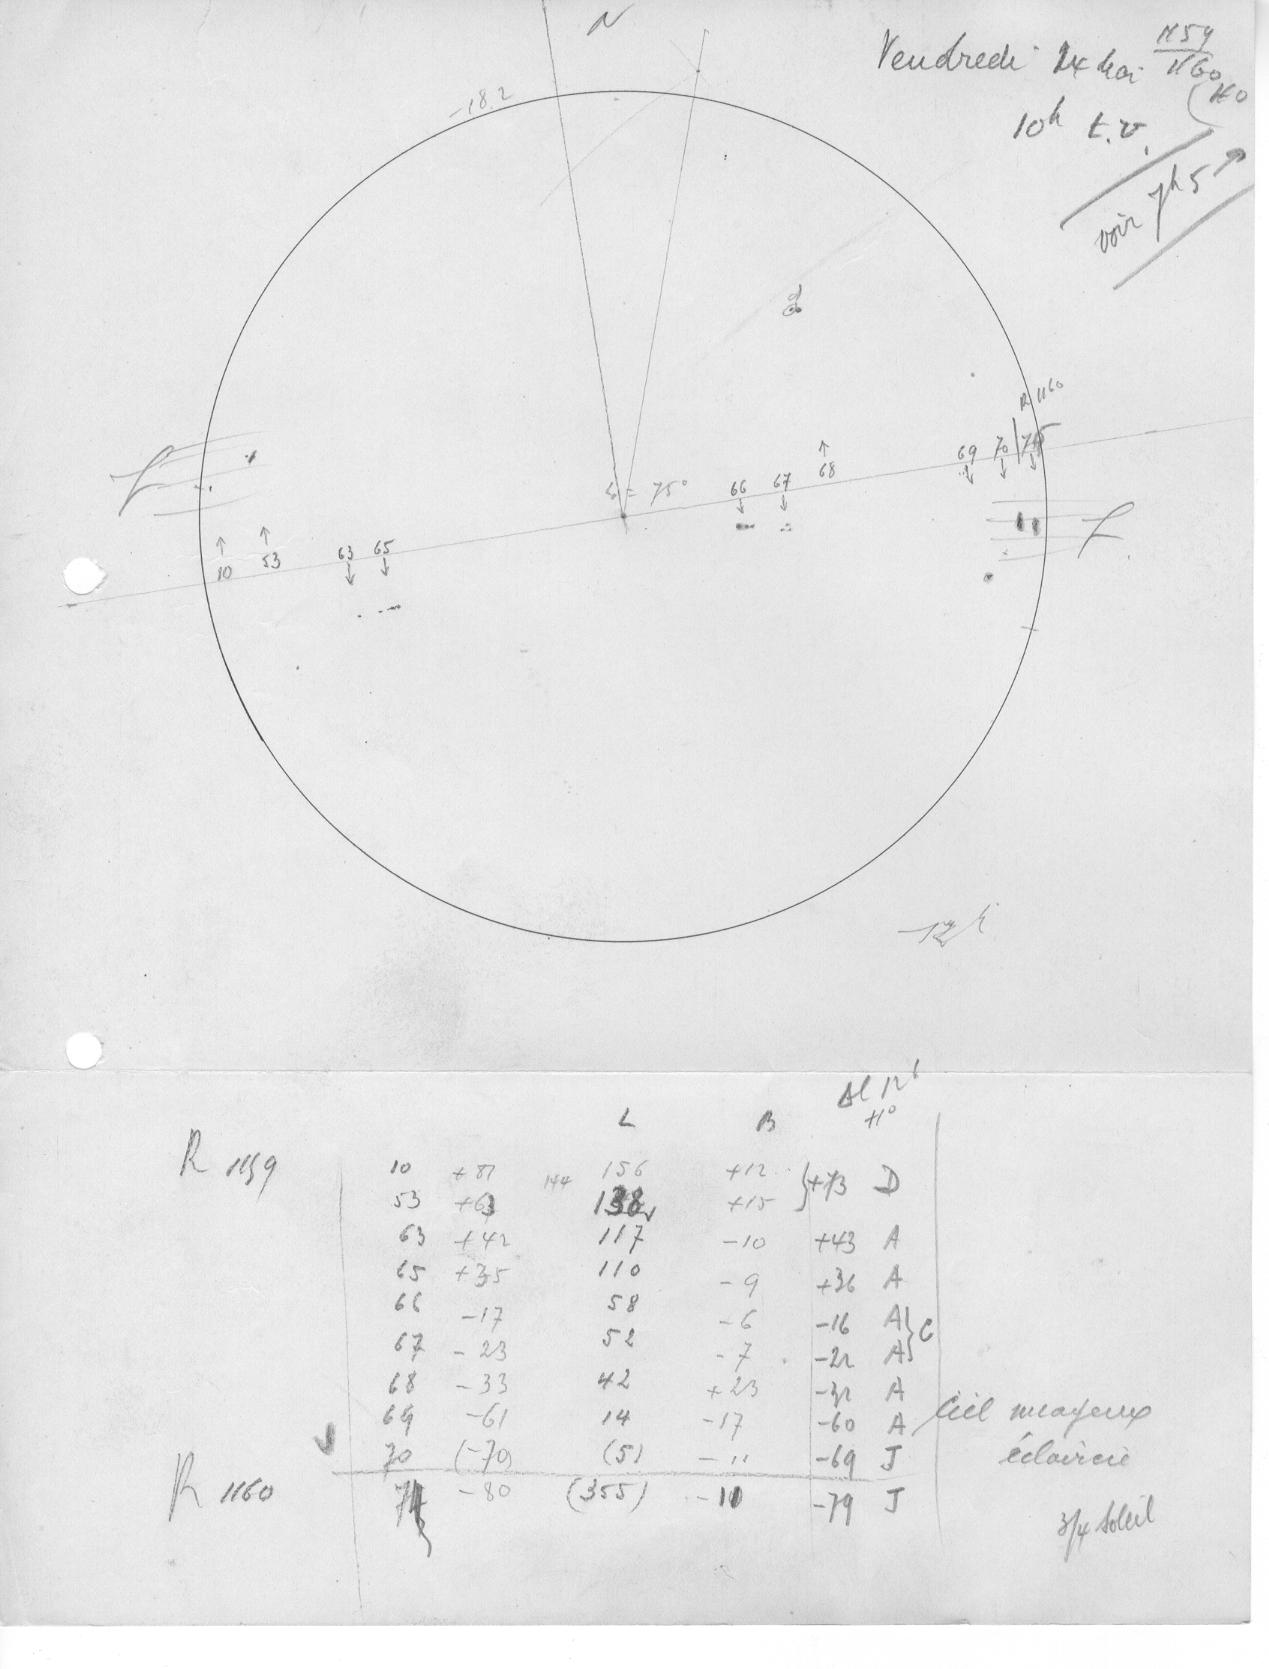 N
Vendredi 24 Mai 1159
1160
10h t.v.
voir 7h 5
-18.2
R 1160
69 70 75
68
66 67
b = 75°
10 53
63 65
12h
L B
R 1159
10 +81 144 156 +12 +73 D
53 +63 138 +15
63 +42 117 -10 +43 A
65 +35 110 -9 +36 A
66 -17 58 -6 -16 A C
67 -23 52 -7 -22 A
68 -33 42 +23 -32 A
69 -61 14 -17 -60 A
70 (-70) (5) -11 -69 J
R 1160 -80 (355) -11 -79 J
Ciel nuageux
éclaircie
3/4 Soleil